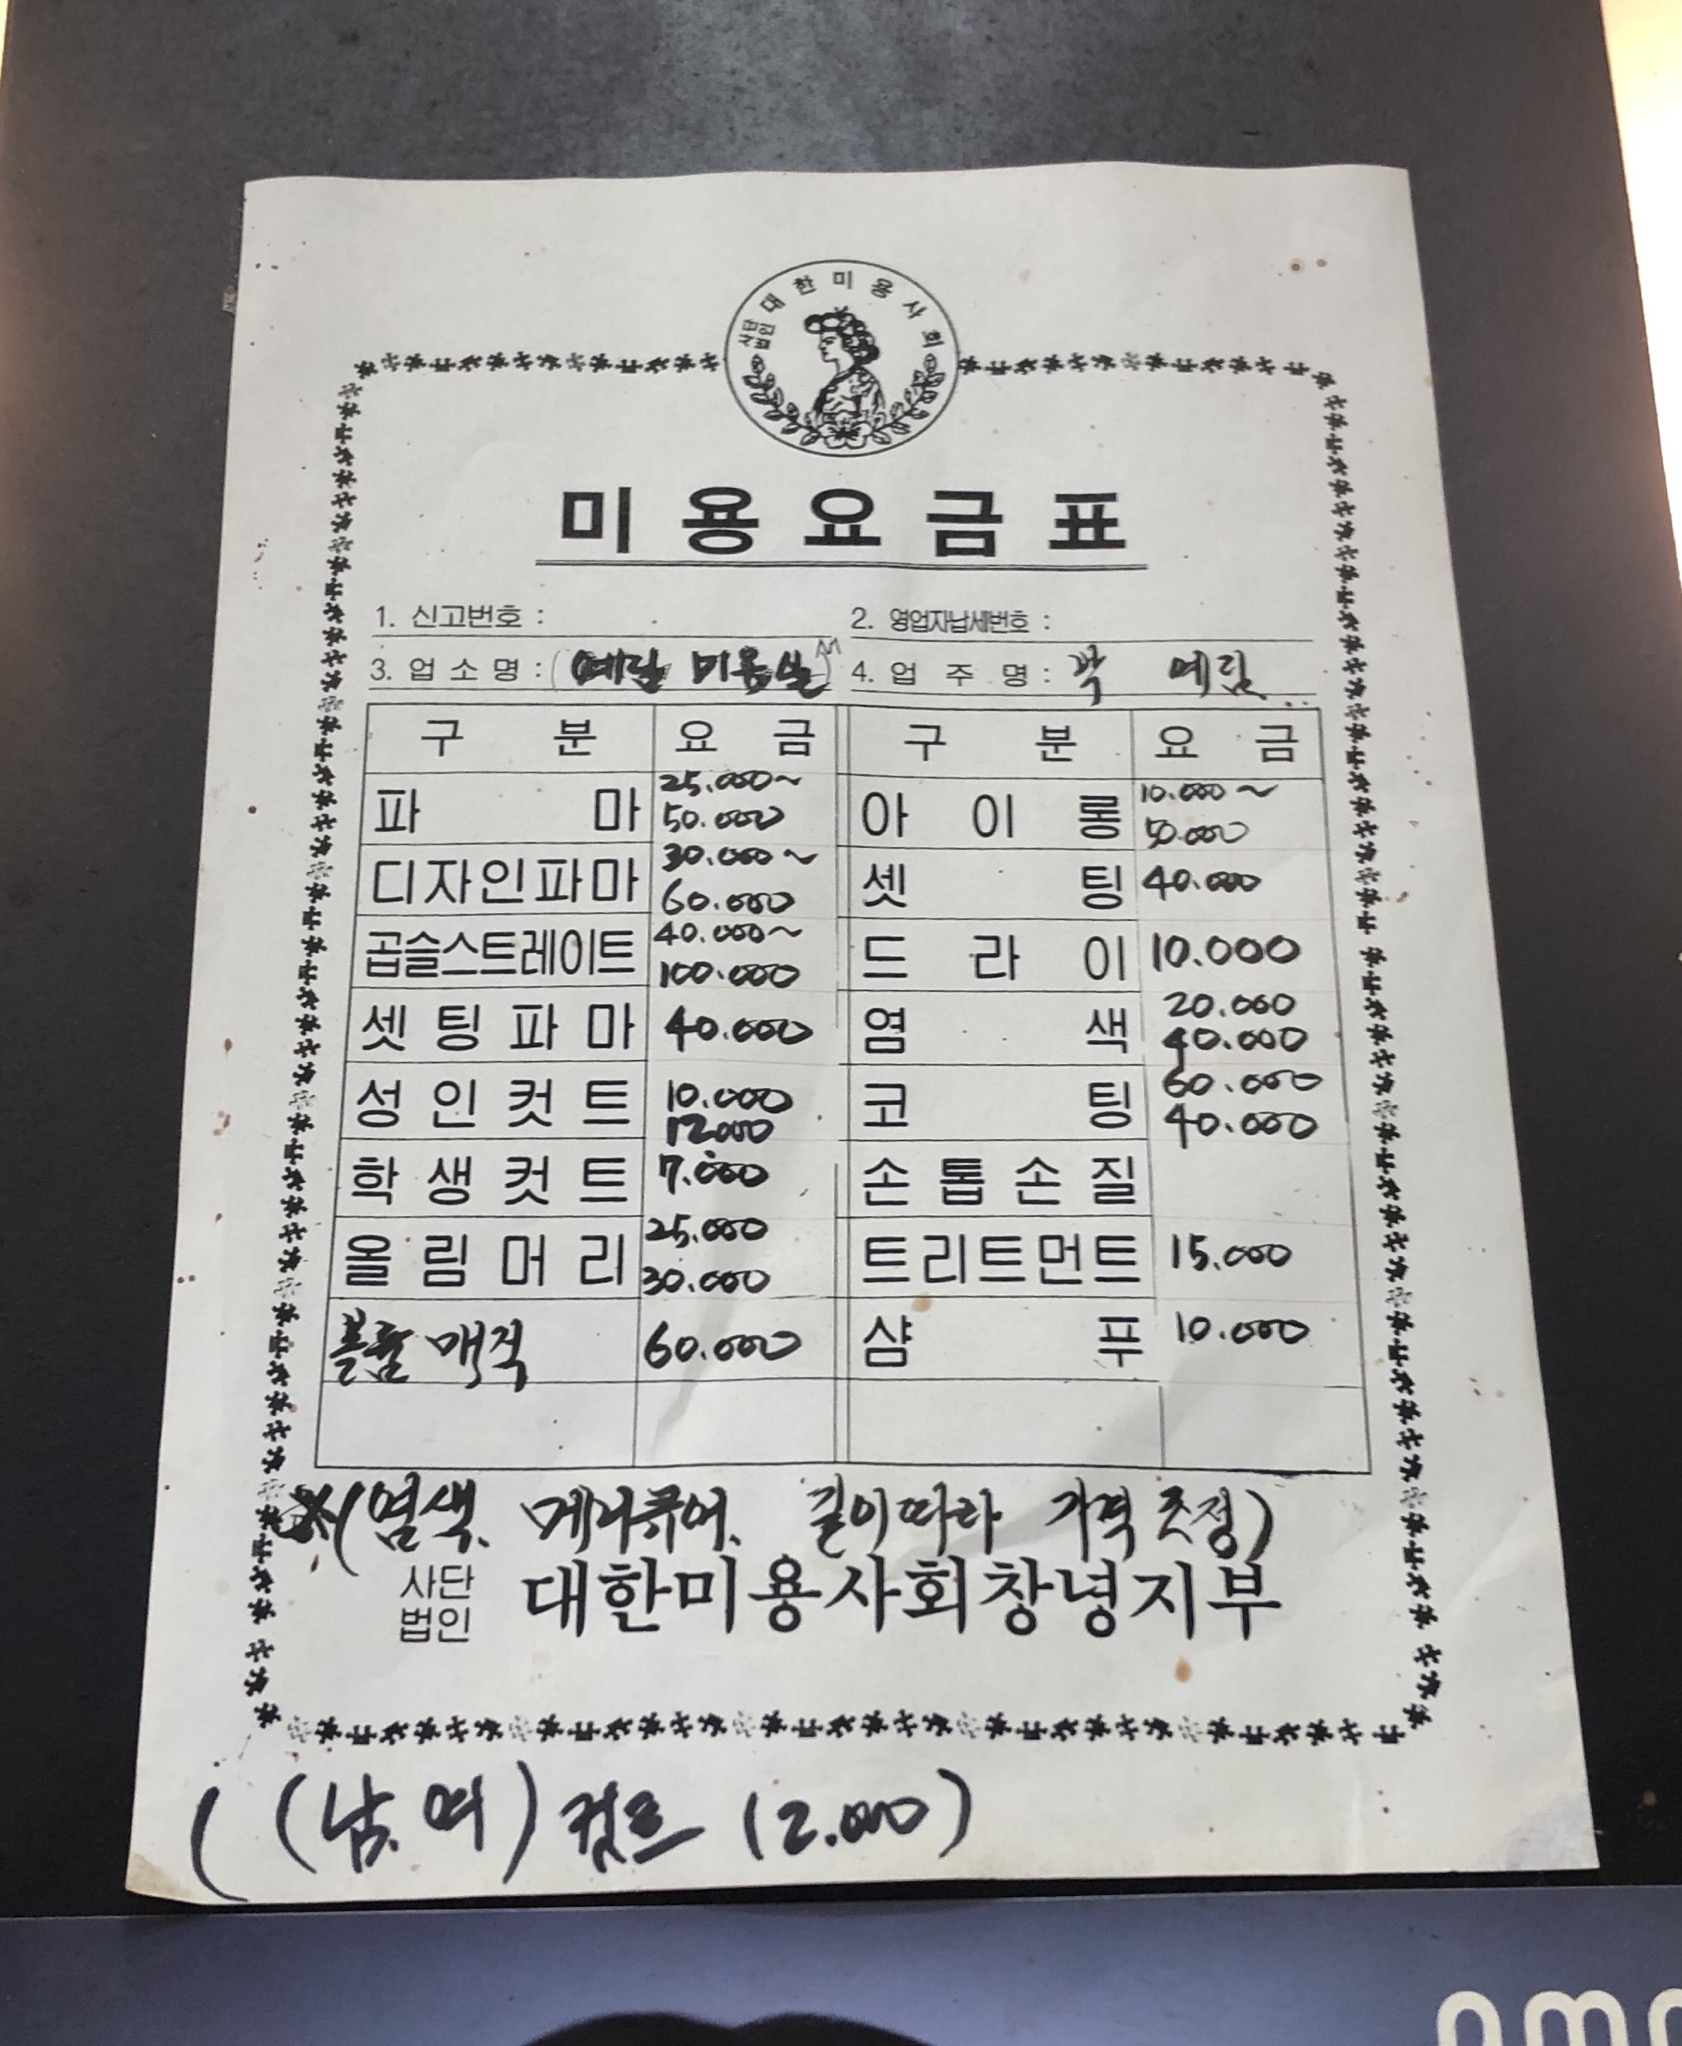 사단법인 대한미용사회
미용요금표
1. 신고번호 : 2. 영업자납세번호 :
3. 업소명 : (예림 미용실) 4. 업주명 : 박 예림
구분 요금 구분 요금
파마 25.000~ 50.000 아이롱 10.000~ 50.000
디자인파마 30.000~ 60.000 셋팅 40.000
곱슬스트레이트 40.000~ 100.000 드라이 10.000
셋팅파마 40.000 염색 20.000 40.000
성인컷트 10.000 12000 코팅 60.000 40.000
학생컷트 7.000 손톱손질
올림머리 25.000 30.000 트리트먼트 15.000
볼륨 매직 60.000 샴푸 10.000
※(염색. 메니큐어. 길이따라 가격 조정)
사단법인 대한미용사회창녕지부
((남.여) 컷트 12.000)